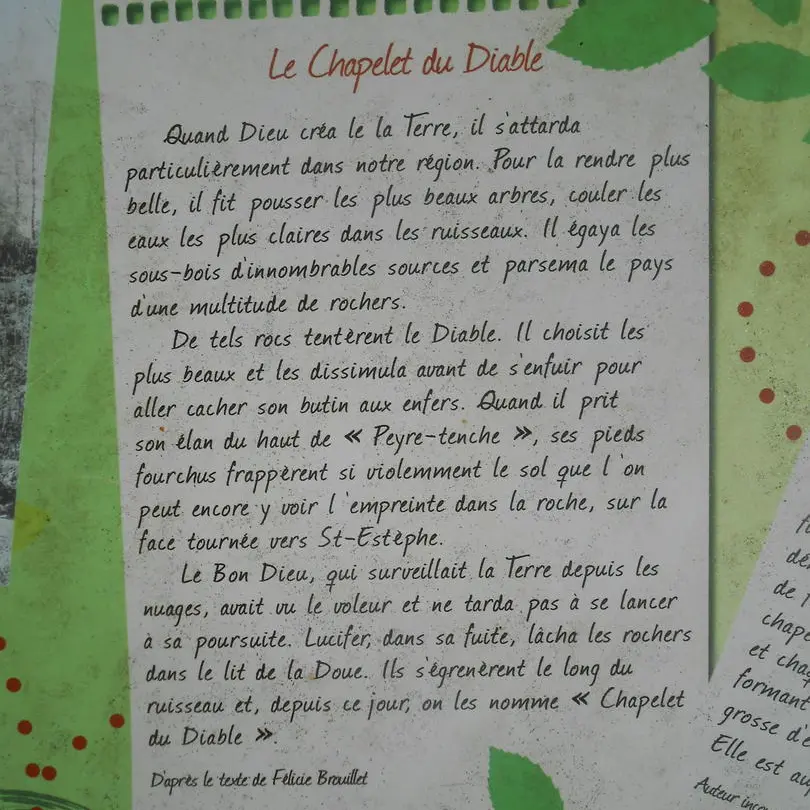 Le Chapelet du Diable
Quand Dieu créa le la Terre, il s'attarda
particulièrement dans notre région. Pour la rendre plus
belle, il fit pousser les plus beaux arbres, couler les
eaux les plus claires dans les ruisseaux. Il égaya les
sous-bois d'innombrables sources et parsema le pays
d'une multitude de rochers.
De tels rocs tentèrent le Diable. Il choisit les
plus beaux et les dissimula avant de s'enfuir pour
aller cacher son butin aux enfers. Quand il prit
son élan du haut de « Peyre-tenche », ses pieds
fourchus frappèrent si violemment le sol que l'on
peut encore y voir l'empreinte dans la roche, sur la
face tournée vers St-Estèphe.
Le Bon Dieu, qui surveillait la Terre depuis les
nuages, avait vu le voleur et ne tarda pas à se lancer
à sa poursuite. Lucifer, dans sa fuite, lâcha les rochers
dans le lit de la Doue. Ils s'égrenèrent le long du
ruisseau et, depuis ce jour, on les nomme « Chapelet
du Diable ».
D'après le texte de Félicie Brouillet
de
chape
et cha
formant
grosse d'e
Elle est au
Auteur inco